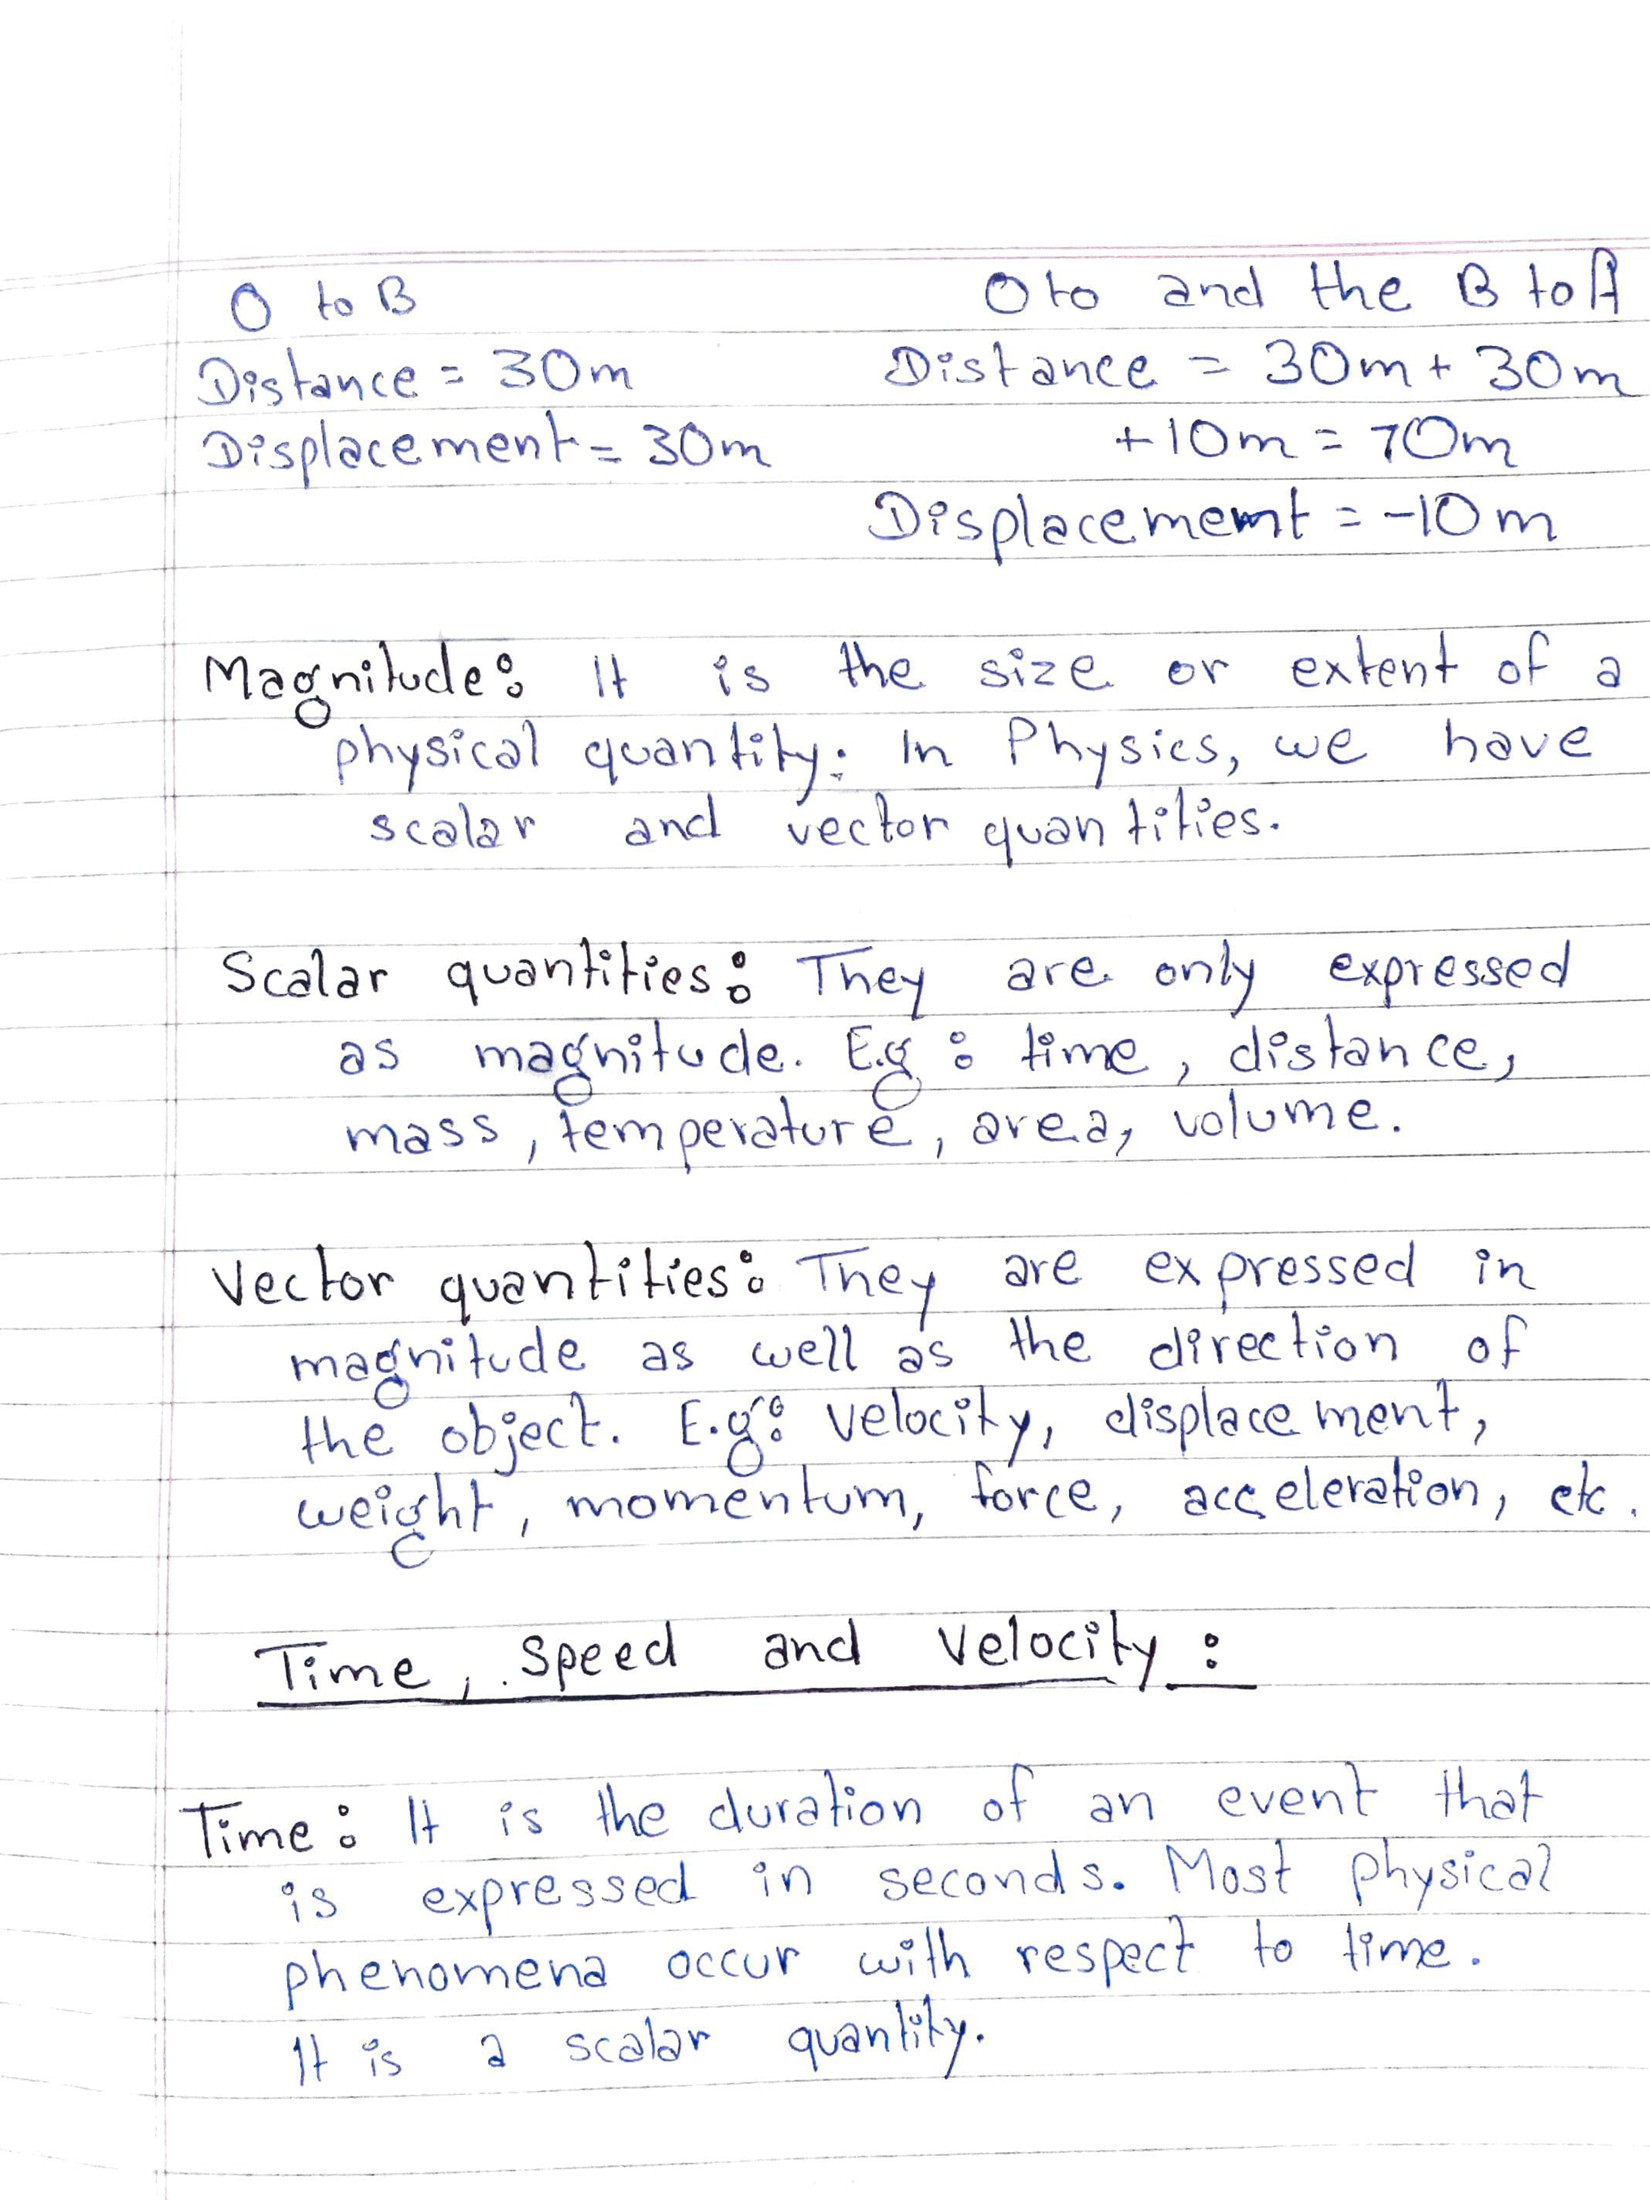 O to B
O to and the B to A
Distance = 30m
Distance = 30m + 30m
Displacement = 30m
+ 10m = 70m
Displacememt = -10m
Magnitude: It is the size or extent of a
physical quantity. In Physics, we have
scalar and vector quantities.
Scalar quantities: They are only expressed
as magnitude. E.g : time, distance,
mass, temperature, area, volume.
Vector quantities: They are expressed in
magnitude as well as the direction of
the object. E.g: velocity, displacement,
weight, momentum, force, acceleration, etc.
Time, Speed and Velocity :
Time : It is the duration of an event that
is expressed in seconds. Most physical
phenomena occur with respect to time.
It is a scalar quantity.